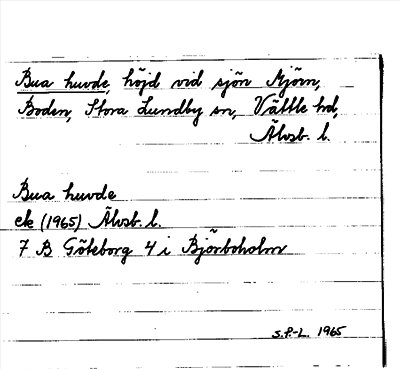 Bua huvde, höjd vid sjön Mjörn,
Boden, Stora Lundby sn, Vättle hd,
Älvsb. l.
Bua huvde
ek (1965) Älvsb. l.
7 B Göteborg 4 i Björboholm
S.P.-L. 1965